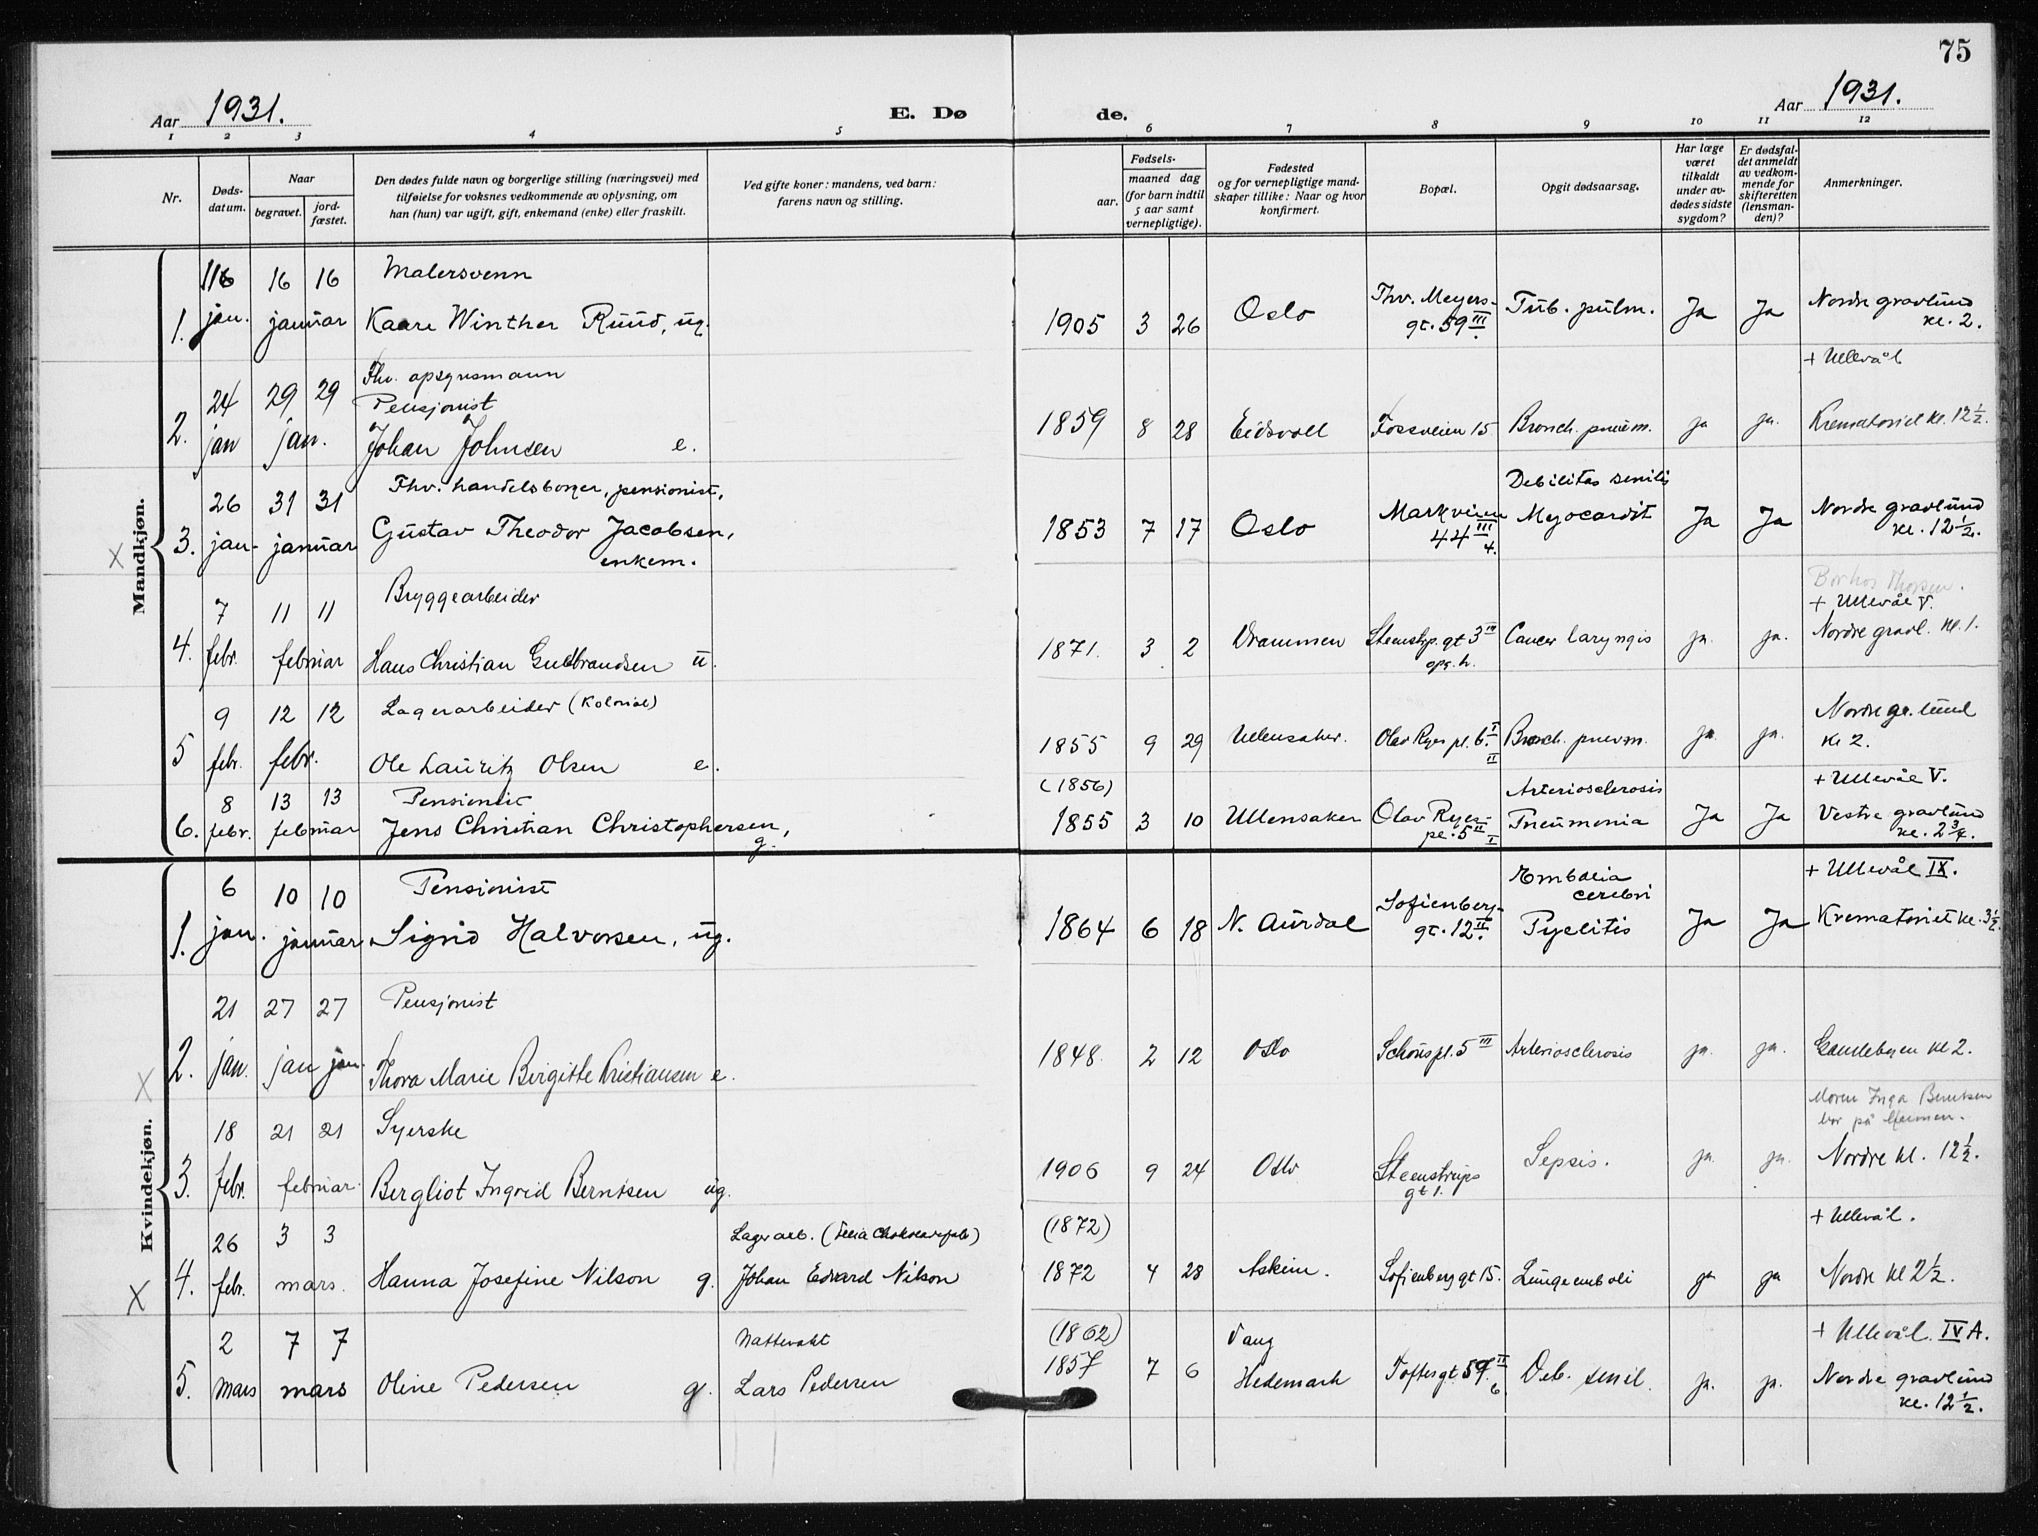 75
Aar 1931.
E. Døde.
Aar 1931.
1 2 3 4 5 6 7 8 9 10 11 12
Nr.
Døds-
datum.
Naar
begravet.
jord-
fæstet.
Den dødes fulde navn og borgerlige stilling (næringsvei) med
tilføielse for voksnes vedkommende av oplysning, om
han (hun) var ugift, gift, enkemand (enke) eller fraskilt.
Ved gifte koner: mandens, ved barn:
farens navn og stilling.
Fødsels-
aar.
maaned dag
(for barn indtil
5 aar samt
vernepligtige).
Fødested
og for vernepligtige mand-
skaper tillike: Naar og hvor
konfirmert.
Bopæl.
Opgit dødsaarsag.
Har læge
været
tilkaldt
under av-
dødes sidste
sygdom?
Er dødsfal-
det anmeldt
av vedkom-
mende for
skifteretten
(lensman-
den)?
Anmerkninger.
Mandkjøn.
16 16 Malersvenn
1. jan. januar Kaare Winther Ruud, ug. 1905 3 26 Oslo Thv. Meyers-
gt. 59 III Tub. pulm. Ja Ja Nordre gravlund
kl. 2.
+ Ullevål
24 29 29 Fhv. opsynsmann
Pensjonist
2. jan jan. Johan Johnsen e. 1859 8 28 Eidsvoll Fossveien 15 Bronch. pneum. ja ja. Krematoriet kl. 12 ½.
26 31 31 Fhv. handelsborger, pensionist,
Debilitas senilis
X 3. jan. januar Gustav Theodor Jacobsen,
enkem. 1853 7 17 Oslo Markveien
44 III
4. Myocardit Ja Ja Nordre gravlund
kl. 12 ½.
7 11 11 Bryggearbeider
+ Ullevål V.
4. febr. februar Hans Christian Gulbrandsen u. 1871. 3 2 Drammen Steenstrp. gt 3 IV
opg. h. Cancer laryngis ja. ja. Nordre gravl. kl. 1.
9 12 12 Lagerarbeider (Kolonial)
5 febr. febr. Ole Lauritz Olsen e. 1855 9 29 Ullensaker. Olav Ryes pl. 6. I
II Bronch. pneum. ja ja. Nordre gr.lund
kl 2.
(1856) + Ullevål V.
8 13 13 Pensionist Arteriosclerosis
6. febr. februar Jens Christian Christophersen,
g. 1855 3 10 Ullensaker Olav Ryes-
pl. 5 II
I Pneumonia Ja Ja Vestre gravlund
kl. 2 ¾.
Kvindekjøn.
+ Ullevål IX.
6 10 10 Pensionist Embolia
cerebri
1. jan. januar Sigrid Halvorsen, ug. 1864 6 18 N. Aurdal Sofienberg-
gt. 12 II. Pyelitis Ja Ja Krematoriet kl. 3 ½
21 27 27 Pensjonist
X 2. jan. jan jan. Thora Marie Birgitte Kristiansen e. 1848. 2 12 Oslo Schous pl. 5 III Arteriosclerosis ja. ja. Gamlebyen kl 2.
Moren Inga Berntsen
bor på
18 21 21 Syerske
3. febr. februar Bergliot Ingrid Berntsen ug. 1906 9 24 Oslo Steenstrups
gt 1. Sepsis. ja. ja. Nordre kl. 12 ½.
(1872) + Ullevål.
26 3 3 Lagerarb. (Freia Chokoladefabr)
X 4. febr. mars. Hanna Josefine Nilson g. Johan Edvard Nilson 1872 4 28 Askim. Sofienberg gt 15. Lungeemboli ja ja Nordre kl 2 ½.
(1862) + Ullevål. IV A.
2 7 7 Nattevakt
5. mars mars Oline Pedersen g. Lars Pedersen 1857 7 6 Vang
Hedemark Toftes gt. 59. II
6. Deb. senil. ja. ja. Nordre gravlund
kl. 12 ½.